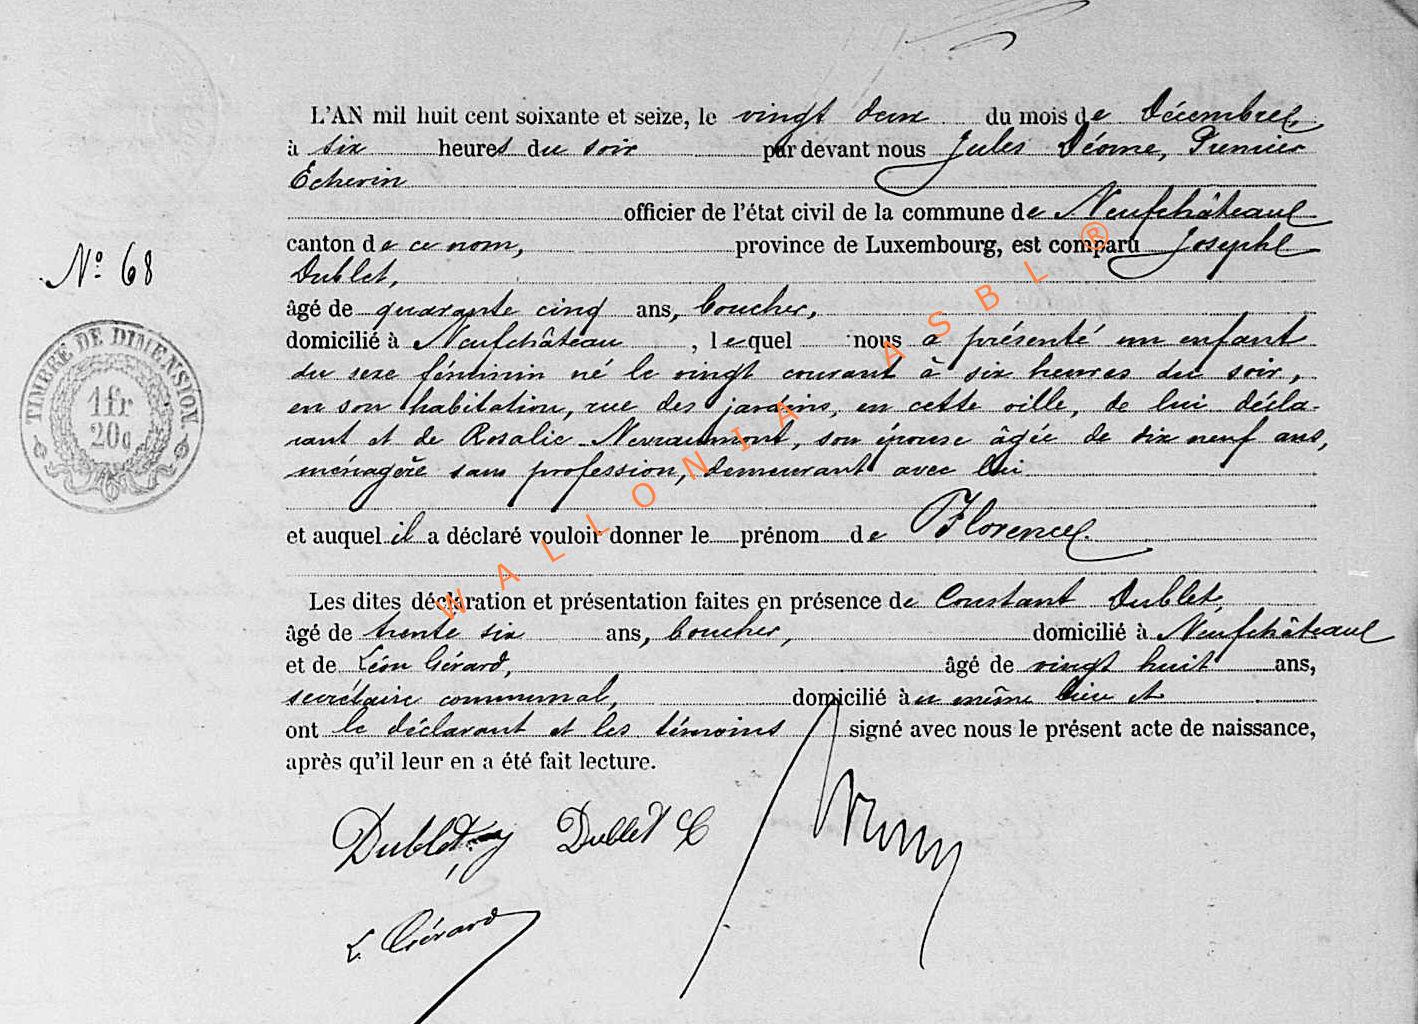 L'AN mil huit cent soixante et seize, le vingt deux du mois de Décembre,
à six heures du soir par devant nous Jules Déome, Premier
Echevin
officier de l'état civil de la commune de Neufchâteau
canton de ce nom, province de Luxembourg, est comparu Joseph
Dublet,
N° 68
âgé de quarante cinq ans, boucher,
domicilié à Neufchâteau, lequel nous a présenté un enfant
du sexe féminin né le vingt courant à six heures du soir,
en son habitation, rue des jardins, en cette ville, de lui décla-
rant et de Rosalie Nevraumont, son épouse âgée de dix neuf ans,
ménagère sans profession, demeurant avec lui
et auquel il a déclaré vouloir donner le prénom de Florence.
Les dites déclaration et présentation faites en présence de Constant Dublet,
âgé de trente six ans, boucher, domicilié à Neufchâteau
et de Léon Gérard, âgé de vingt huit ans,
secrétaire communal, domicilié au même lieu et
ont le déclarant et les témoins signé avec nous le présent acte de naissance,
après qu'il leur en a été fait lecture.
TIMBRE DE DIMENSION
1fr
20c
Dublet J Dublet C
L. Gérard
WALLONIA ASBL ®